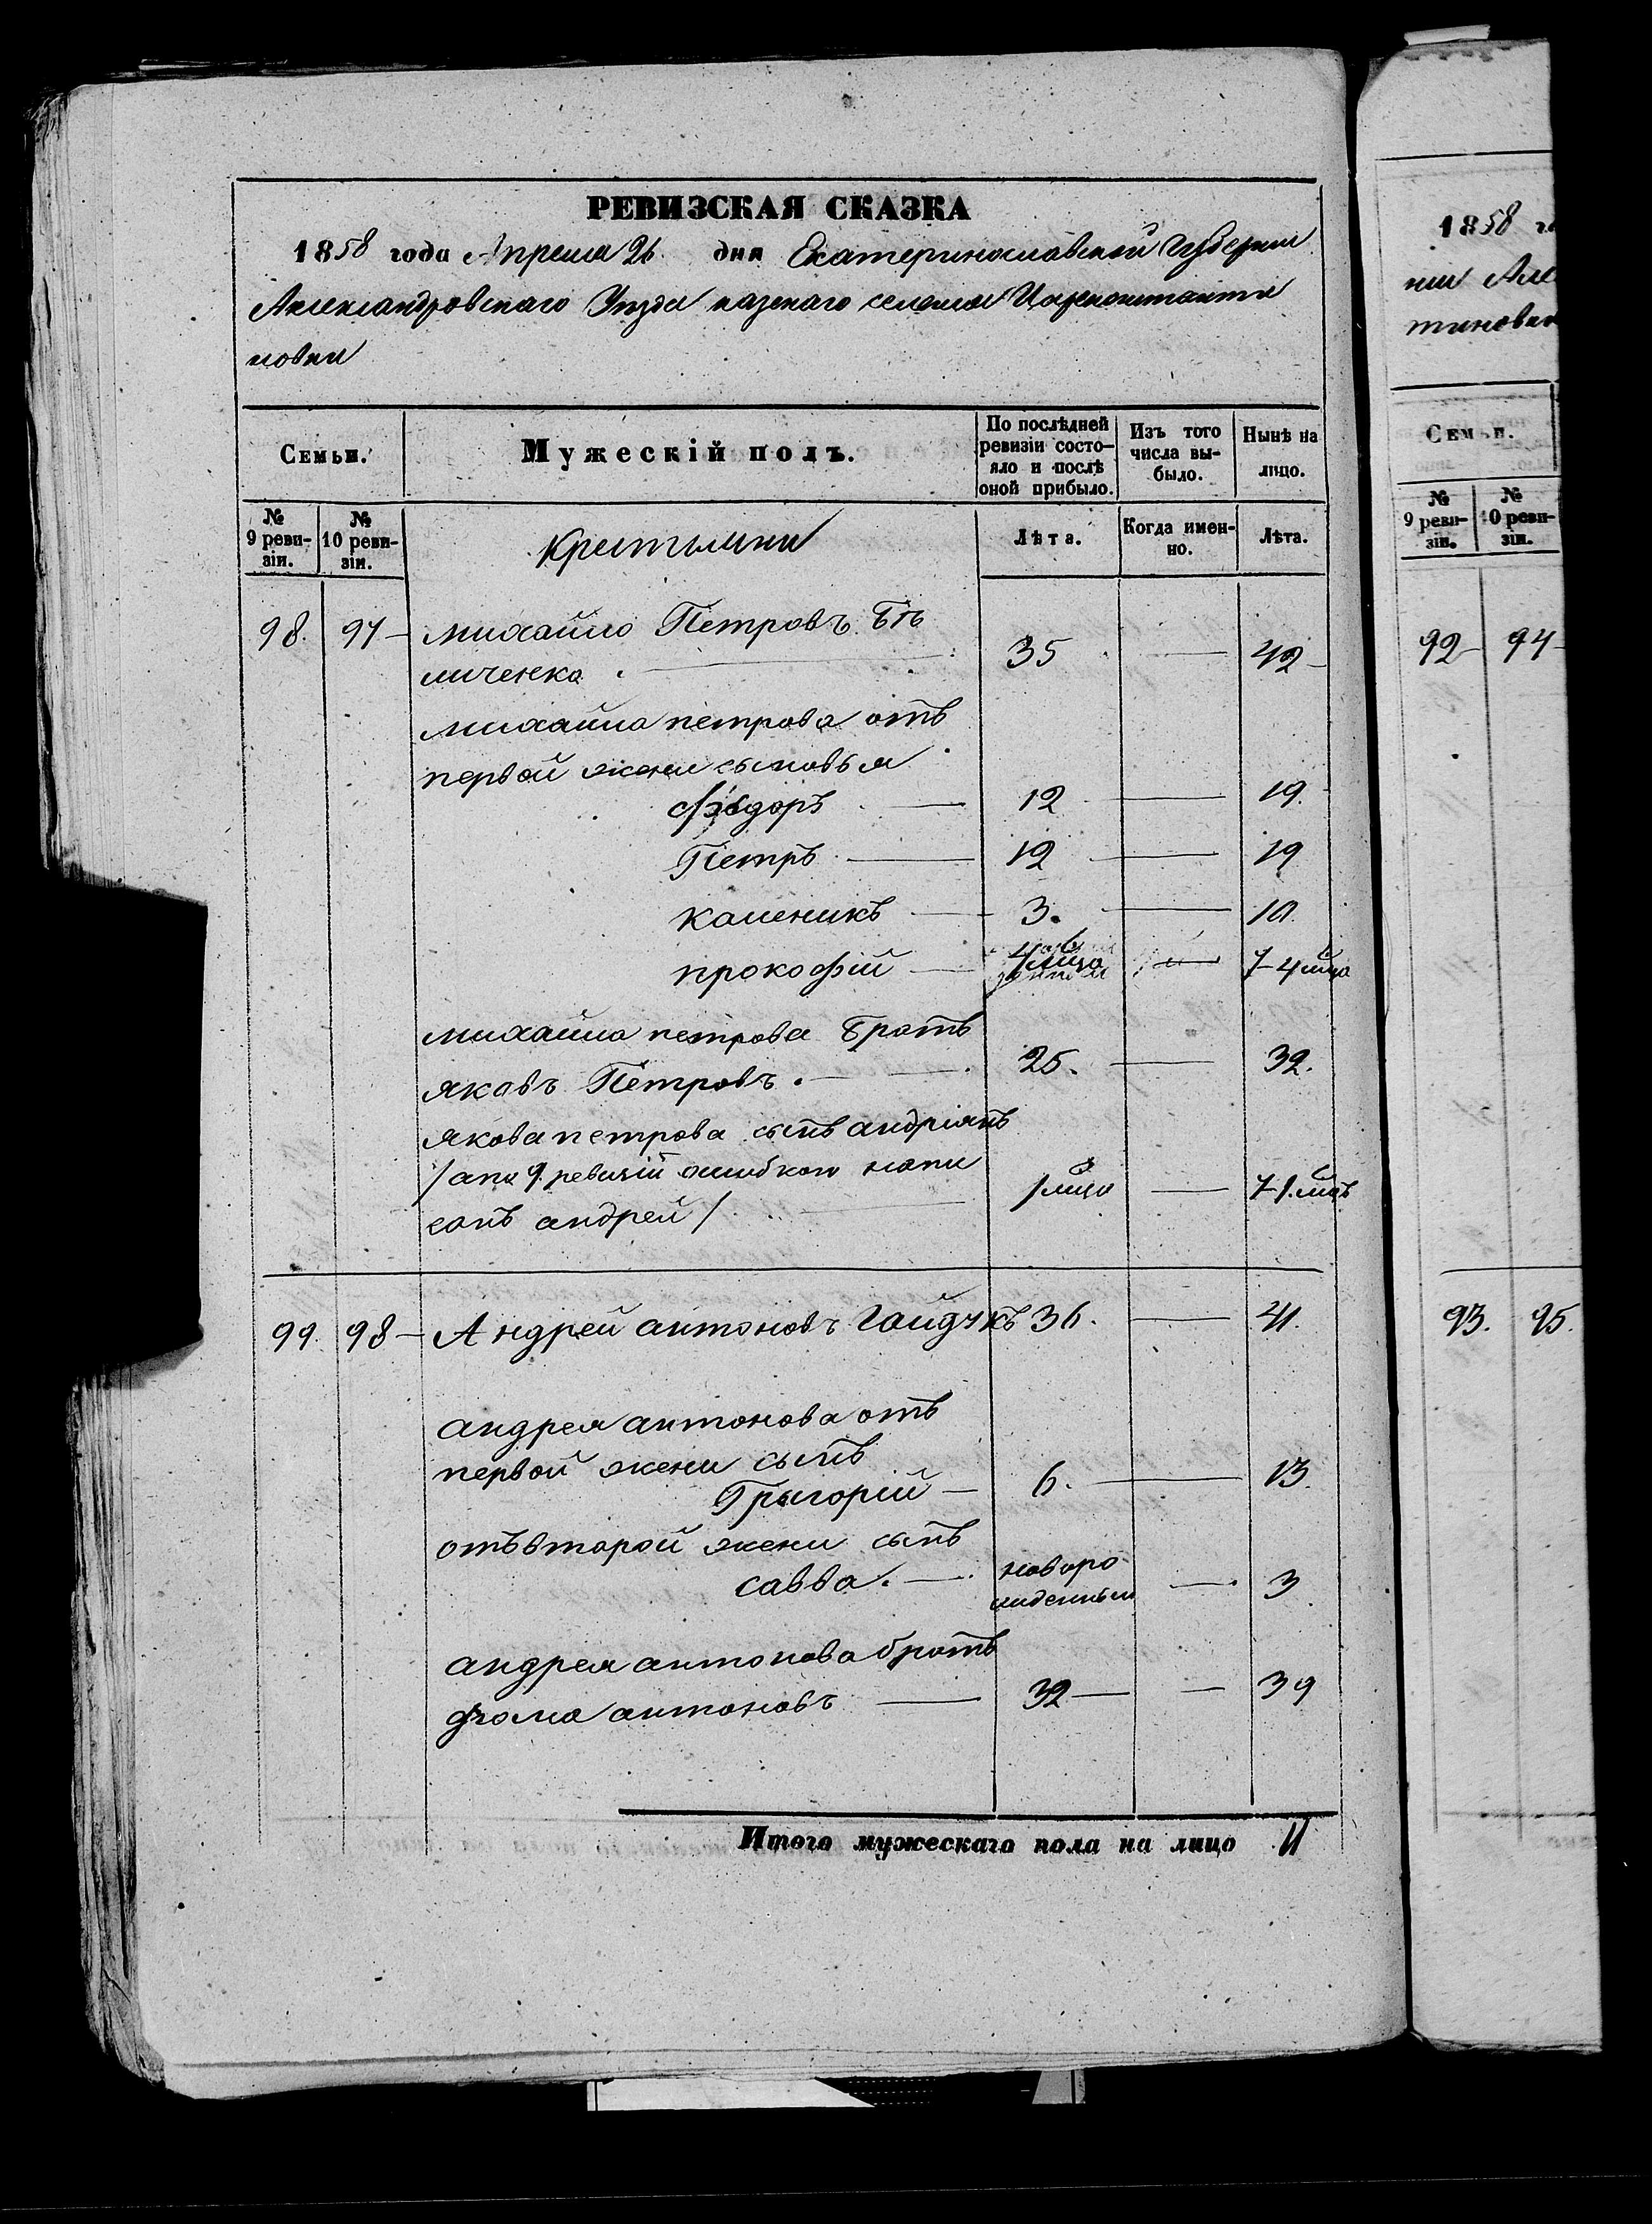 РЕВИЗСКАЯ СКАЗКА
1858 года Апреля 26 дня Екатеринославской Губернии
Александровскаго Уезда казенаго селения Цареконстанти
новки
Семьи.
Мужескій полъ.
По послѣдней ревизіи состо-
яло и послѣ
оной прибыло.
Изъ того
числа вы-
было.
Нынѣ на
лицо.
№
9 реви-
зіи.
№
10 реви-
зіи.
Крестьяни
Лѣта.
Когда имен-
но.
Лѣта.
98. 97 Михайло Петровъ Бѣ
личенко 35 42
Михайла петрова отъ
первой жени сыновья
Фёдоръ 12 19.
Петръ 12 19
каленикъ 3. 10.
прокофій 7-4 мца
михайла петрова братъ
яковъ Петровъ. 25. 32.
якова петрова сынъ андріянъ
/а по 9 ревизій ошибкою напи
санъ андрей/ 1 мца 7-1. мцъ
99. 98 Андрей антоновъ Гайдукъ 36. 41.
андрея антонова отъ
первой жени сынъ
Григорій 6. 13.
отъ второй жени сынъ
савва. новоро
жденный 3
андрея антонова братъ
фома антоновъ 32 39
Итого мужескаго пола на лицо 11
1858 го
нии Але
тиновки
Семьи.
№
9 реви-
зіи.
№
10 реви-
зіи.
92 94
93. 95.